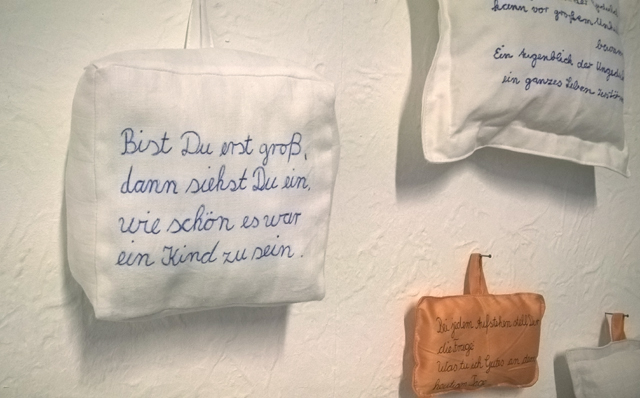 Bist Du erst groß,
dann siehst Du ein,
wie schön es war
ein Kind zu sein.
kann vor großem
Ein Augenblick der
ein ganzes Leben
Bei jedem Aufstehen
die Frage
Was tu ich Gutes an